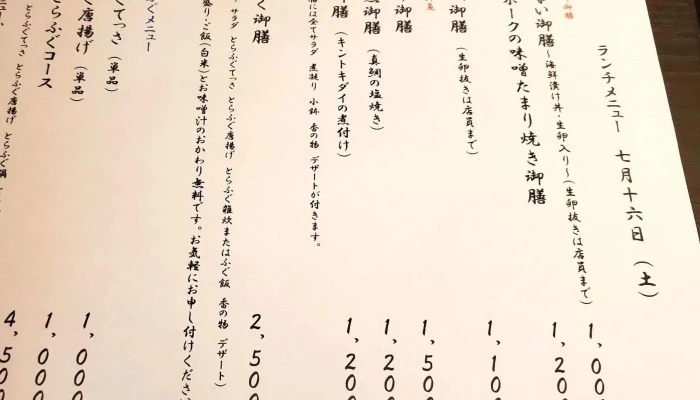 ランチメニュー 七月十六日 (土)
い御膳~海鮮漬け丼・生卵入り~(生卵抜きは店員まで) 1,00
御膳
ポークの味噌たまり焼き御膳 1,20
1,10
御膳 (生卵抜きは店員まで)
御膳 1,50
御膳 (真鯛の塩焼き) 1,200
膳 (キントキダイの煮付け) 1,200
膳には全てサラダ 煮凝り 小鉢 香の物 デザートが付きます。
く御膳 2,500
サラダ とらふぐてっさ とらふぐ唐揚げ とらふぐ雑炊またはふぐ飯 香の物 デザート)
盛り・ご飯(白米)とお味噌汁のおかわり無料です。お気軽にお申し付けください
ぐメニュー
てっさ (単品) 1,000
唐揚げ (単品) 1,000
らふぐコース 4,500
とらふぐてっさ とらふぐ唐揚げ とらふぐ鍋